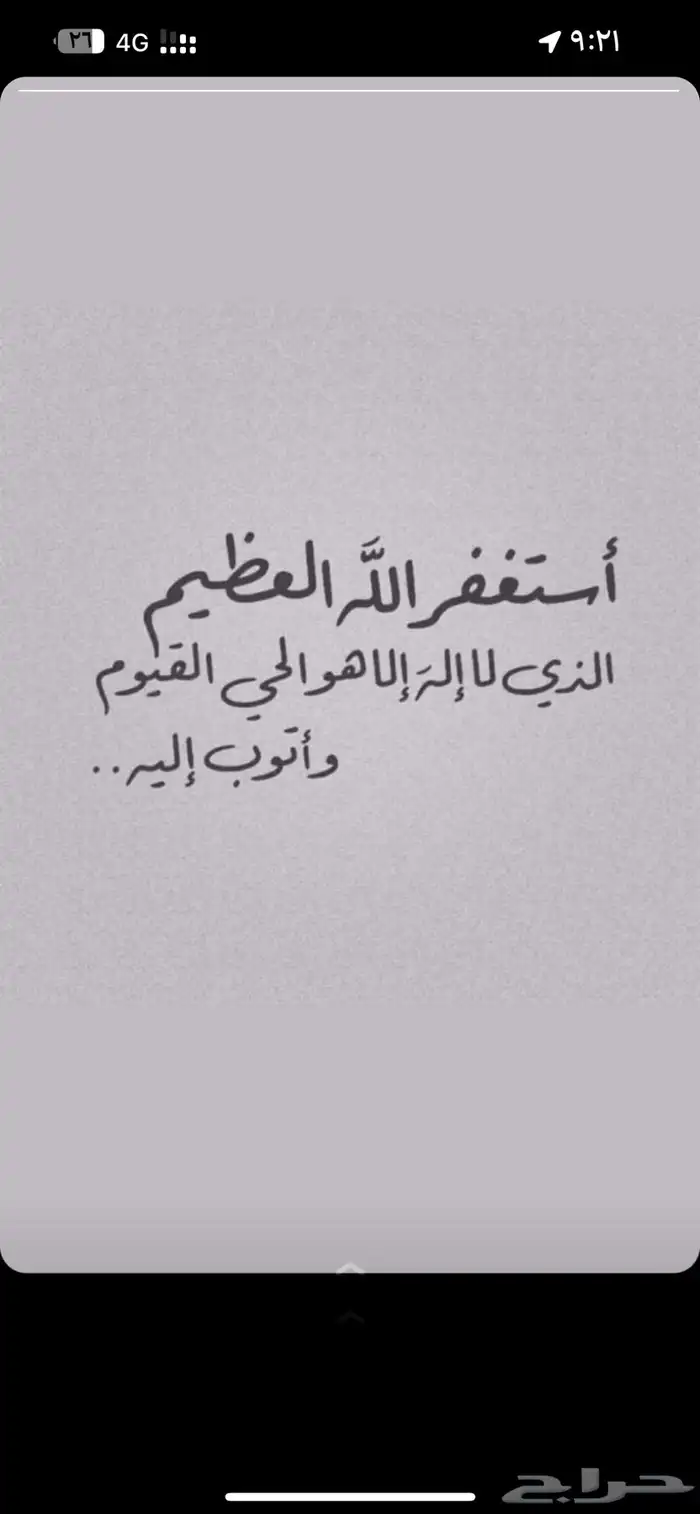 ٢٦ 4G ٩:٢١
أستغفر اللَّه العظيم
الذي لا إلهَ إلا هو الحي القيوم
وأتوب إليه..
حراج